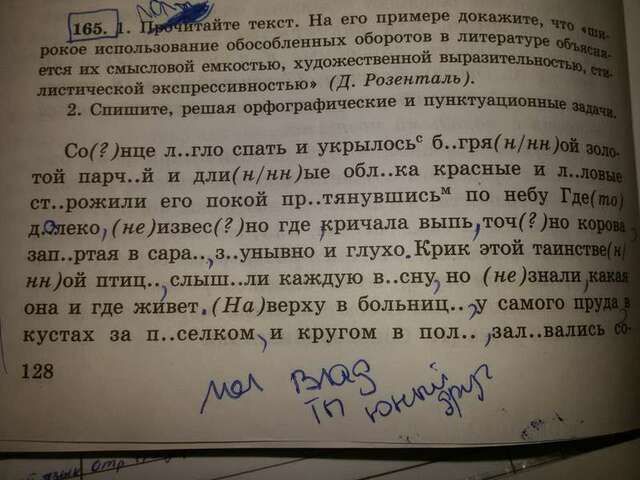 165. 1. Прочитайте текст. На его примере докажите, что «ши-
рокое использование обособленных оборотов в литературе объясня-
ется их смысловой емкостью, художественной выразительностью, сти-
листической экспрессивностью» (Д. Розенталь).
2. Спишите, решая орфографические и пунктуационные задачи.
Со(?)нце л..гло спать и укрылосьᶜ б..гря(н/нн)ой золо-
той парч..й и дли(н/нн)ые обл..ка красные и л..ловые
ст..рожили его покой пр..тянувшисьᵐ по небу Где(то)
д..леко, (не)извес(?)но где, кричала выпь, точ(?)но корова
зап..ртая в сара.., з..унывно и глухо. Крик этой таинстве(н/
нн)ой птиц.., слыш..ли каждую в..сну, но (не)знали, какая
она и где живет. (На)верху в больниц.., у самого пруда, в
кустах за п..селком, и кругом в пол.., зал..вались со-
128
Влад
ты юный
друг